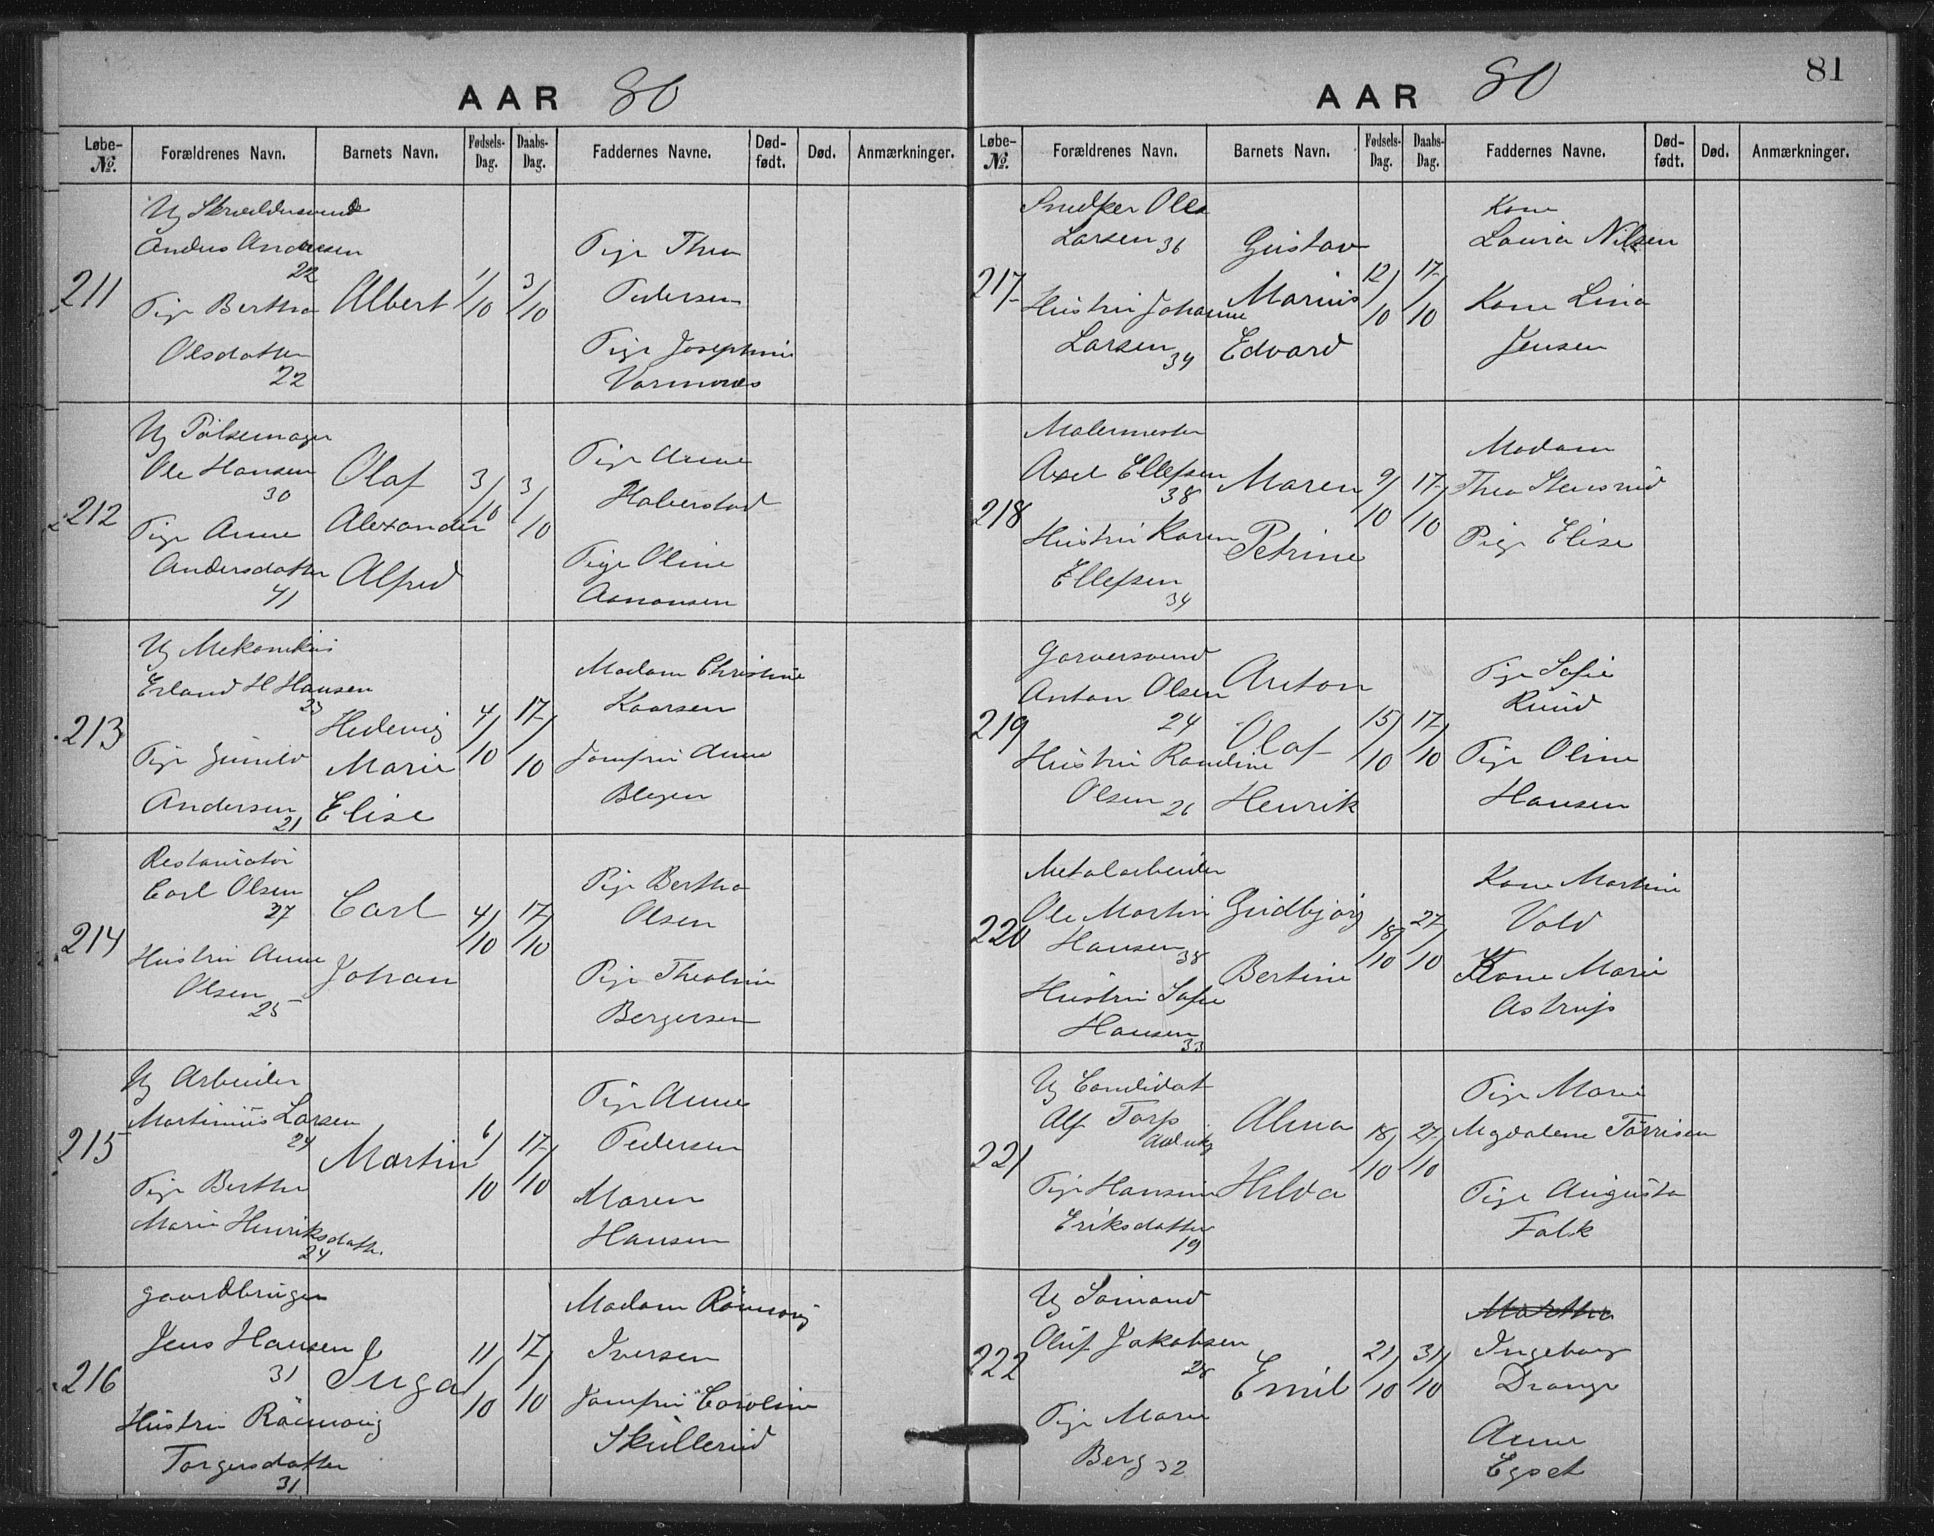 AAR 80
Løbe-№. Forældrenes Navn. Barnets Navn. Fødsels-Dag. Daabs-Dag. Faddernes Navne. Død-født. Død. Anmærkninger.
211
Ug
Anders Andresen
22
Pige Bertha
Olsdatter
22
Albert
1/10
3/10
Pige Thea
Pedersen
Pige Josephine
212
Ug Pølsemager
Ole Hansen
30
Pige Anne
Andersdatter
41
Olaf
Alexander
Alfred
3/10
3/10
Pige Anne
Halverstad
Pige Oline
Aanonsen
213
Ug Mekanikus
Erland H Hansen
23
Pige Gunild
Andersen
21
Hedevig
Marie
Elise
4/10
17/10
Madam Christine
Kaarsen
Jomfru Anne
Blegen
214
Restauratør
Carl Olsen
27
Hustru Anne
Olsen
25
Carl
Johan
4/10
17/10
Pige Bertha
Olsen
Pige Theoline
Bergersen
215
Ug Arbeider
Martinius Larsen
24
Pige Berthe
Marie Henriksdatter
24
Martin
6/10
17/10
Pige Anne
Pedersen
Maren
Hansen
216
Gaardbruger
Jens Hansen
31
Hustru Rønnaug
Torgersdatter
31
Inga
11/10
17/10
Madam Rønnaug
Iversen
Jomfru Caroline
Skullerud
AAR 80
81
Løbe-№. Forældrenes Navn. Barnets Navn. Fødsels-Dag. Daabs-Dag. Faddernes Navne. Død-født. Død. Anmærkninger.
217
Snedker Olea
Larsen 36
Hustru Johanne
Larsen 34
Gustav
Marius
Edvard
12/10
17/10
Kone
Laura Nilsen
Kone Lina
Jensen
218
Malermester
Axel Ellefsen
38
Hustru Karen
Ellefsen
34
Maren
Petrine
9/10
17/10
Madam
Thea Stensrud
Pige Elise
219
Garversvend
Anton Olsen
24
Hustru Randine
Olsen 26
Anton
Olaf
Henrik
15/10
17/10
Pige Sofie
Ruud
Pige Oline
Hansen
220
Metalarbeider
Ole Martin
Hansen 38
Hustru Sofie
Hansen
33
Gudbjørg
Bertine
18/10
27/10
Kone Martine
Vold
Kone Marie
Astrup
221
Ug Candidat
Alf Torp
Pige Hansine
Eriksdatter
19
Alma
Hilda
18/10
27/10
Pige Marie
Magdalene Tørrisen
Pige Augusta
Falk
222
Ug Sømand
Oluf Jakobsen
28
Pige Marie
Berg 32
Emil
21/10
31/10
Martha
Ingeborg
Drange
Anne
Egset